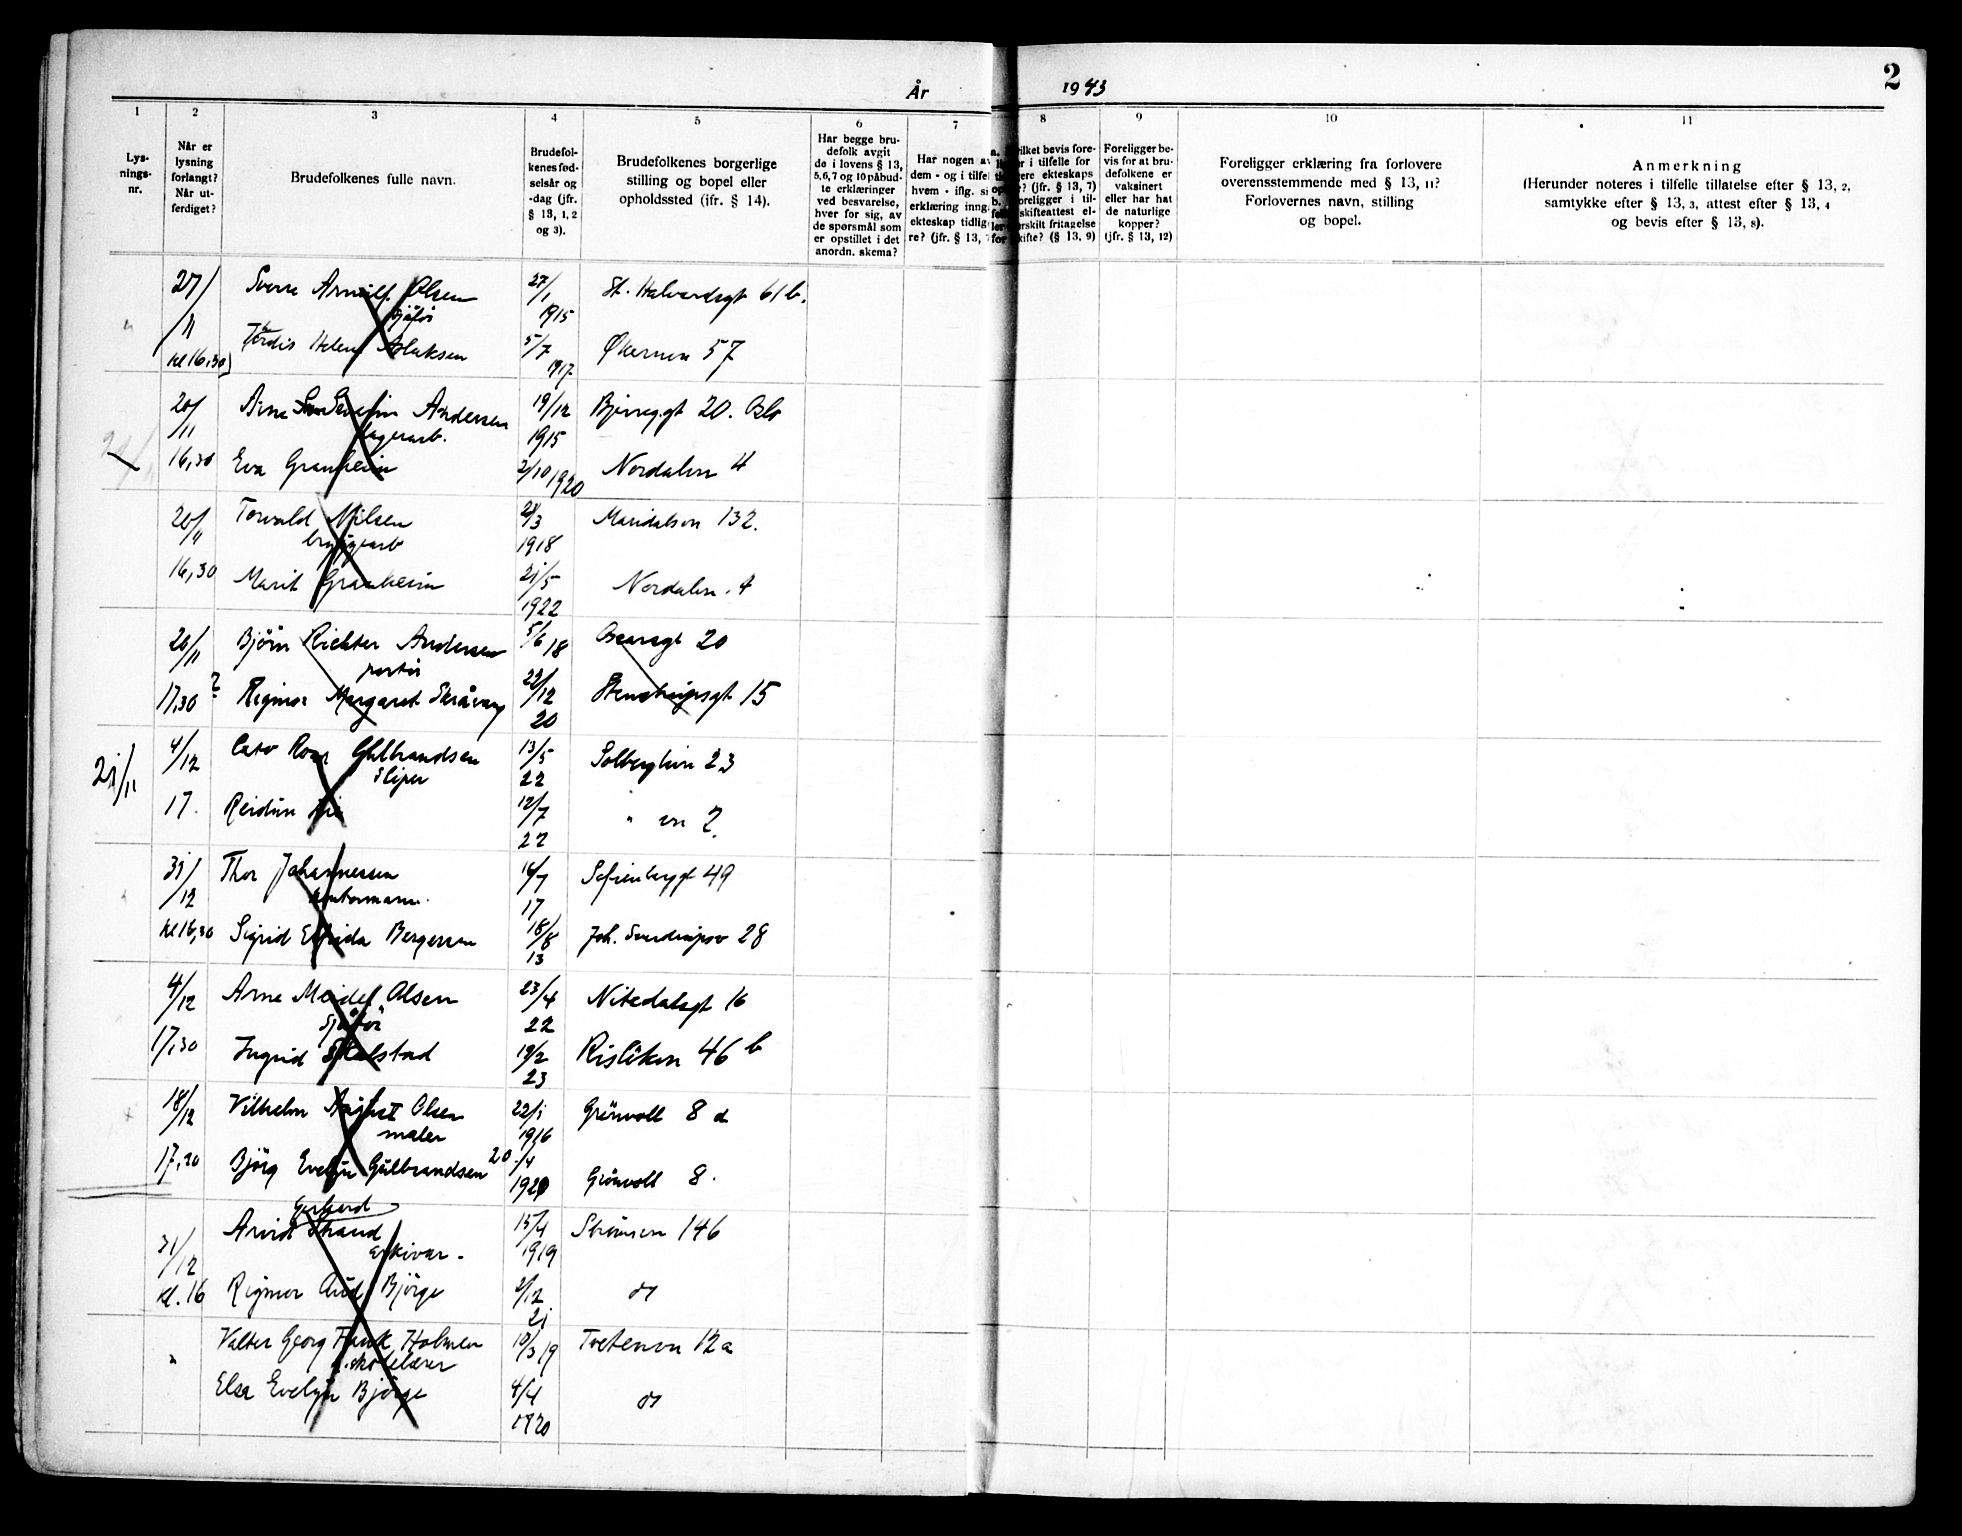 År 1943
2
1 2 3 4 5 6 7 8 9 10 11
Lys-
nings-
nr.
Når er
lysning
forlangt?
Når ut-
ferdiget?
Brudefolkenes fulle navn.
Brudefol-
kenes fød-
selsår og
-dag (jfr.
§ 13, 1, 2
og 3).
Brudefolkenes borgerlige
stilling og bopel eller
opholdssted (jfr. § 14).
Har begge bru-
defolk avgit
de i lovens § 13,
5,6,7 og 10 påbud-
te erklæringer
ved besvarelse,
hver for sig, av
de spørsmål som
er opstillet i det
anordn. skema?
Har nogen av
dem - og i tilfel
hvem - iflg. si
erklæring inng.
ekteskap tidlig-
re? (jfr. § 13,
ilket bevis fore-
er i tilfelle for
ere ekteskaps
? (jfr. § 13, 7)
oreligger i til-
skifteattest el-
rskilt fritagelse
kifte? (§ 13, 9)
Foreligger be-
vis for at bru-
defolkene er
vaksinert
eller har hat
de naturlige
kopper?
(jfr. § 13, 12)
Foreligger erklæring fra forlovere
overensstemmende med § 13, 11?
Forlovernes navn, stilling
og bopel.
Anmerkning
(Herunder noteres i tilfelle tillatelse efter § 13, 2,
samtykke efter § 13, 3, attest efter § 13, 4
og bevis efter § 13, 8).
27/11 Sverre Arnulf Olsen 27/1 1915 St. Halvardsgt 61 b.
sjåfør
kl 16,30 Tordis Helene Aslaksen 5/7 1917 Økernvn 57
20/11 Arne Severin Andersen 19/12 1915 Bjerreg.gt 20. Oslo
lagerarb.
16,30 Eva Granheim 2/10 1920 Nordalvn 4
20/11 Torvald Nilsen 28/3 1918 Maridalsvn 132.
bryggearb
16,30 Marit Granheim 21/5 1922 Nordalvn. 4
20/11 Björn Richter Andersen 5/6 18 Oscarsgt 20
portør
17,30 ? Rigmor Margaret Skråvang 22/12 20 Stenstrupsgt 15
21/11 4/12 Cato Roar Gulbrandsen 13/5 22 Solberglivn 23
Sliper
17. Reidun 12/7 22 " vn 2
31/12 Thor Johannessen 14/7 17 Sofienberggt 49
kontormann.
kl 16,30 Sigrid Elfrida Bergersen 18/8 13 Joh. Sverdrupsv 28
4/12 Arne Meidel Olsen 23/4 22 Nitedalsgt 16
Sjåfør
17,30 Ingrid Skulstad 19/2 23 Rislökvn 46 b
18/12 Vilhelm August Olsen 22/1 1916 Grönvoll 8 d
maler
17,30 Björg Evelyn Gulbrandsen 20./4 1920 Grönvoll 8.
Gerhard
31/12 Arvid Strand 15/4 1919 Strömsvn 146
arkivar.
kl. 16 Rigmor Aud Björge 2/12 21 do
" Valter Georg Frank Holmen 10/3 19 Tvetenvn 12a
skolelærer
Elsa Evelyn Björge 4/4 1920 do